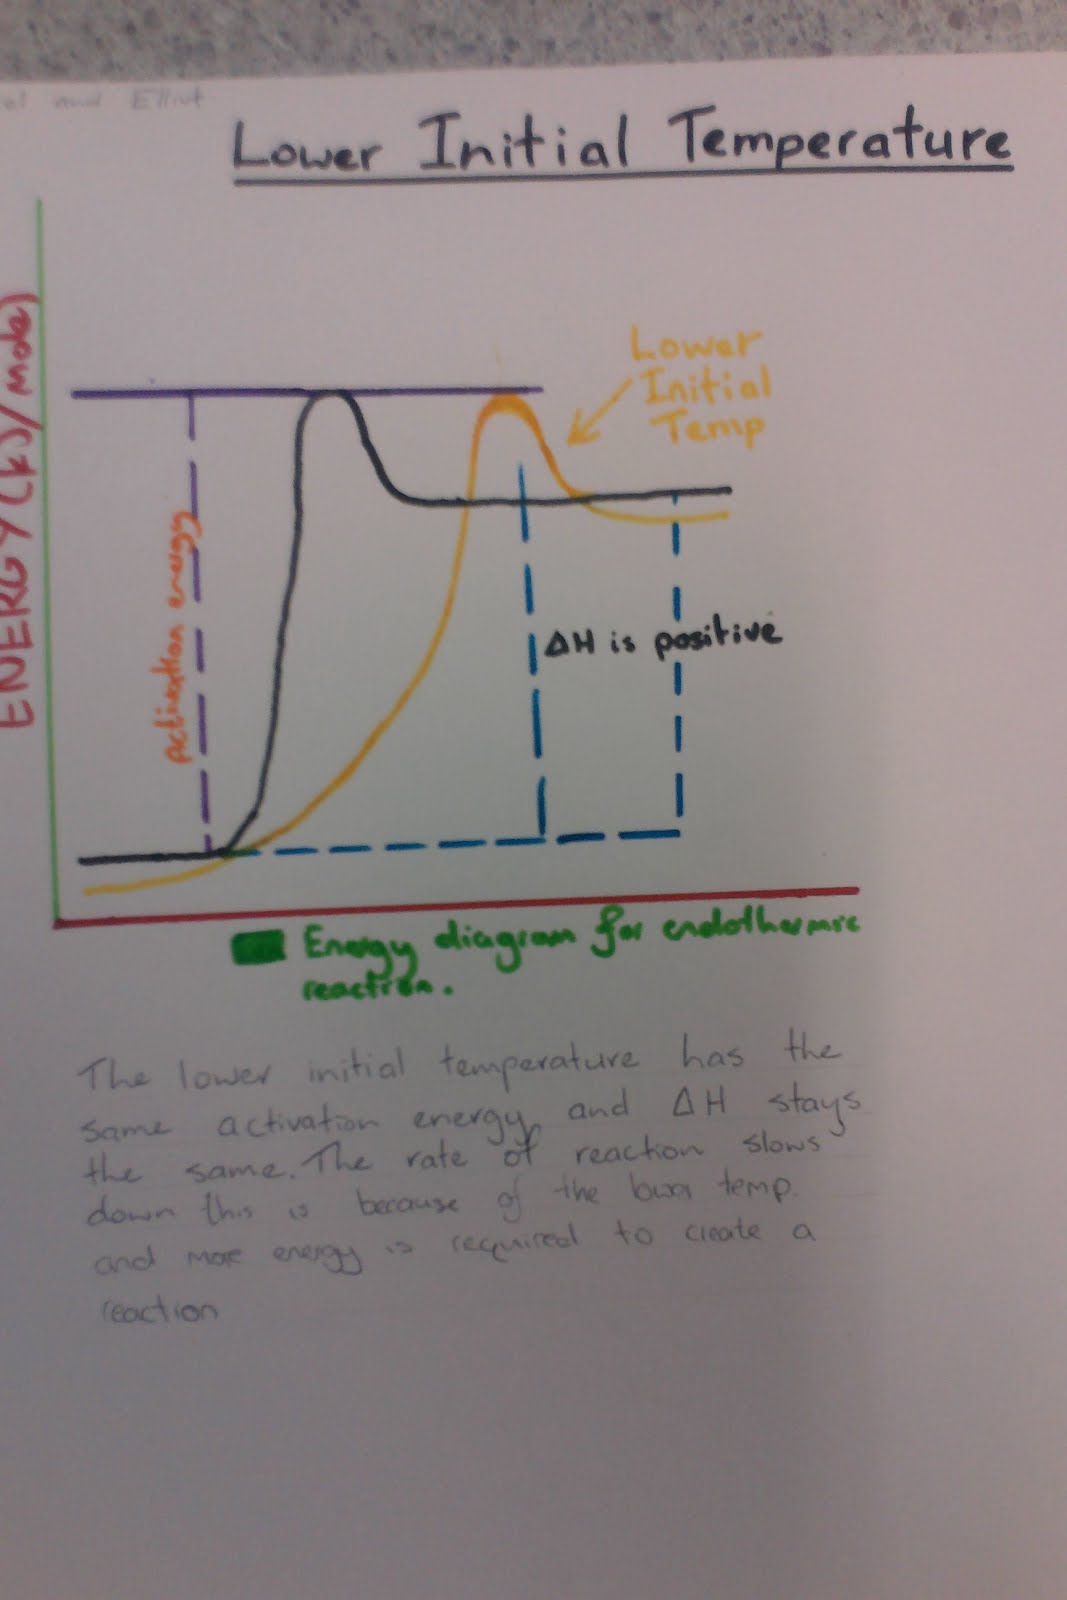 and Elliot
Lower Initial Temperature
ENERGY (kJ/mole)
Lower
Initial
Temp
Activation energy
ΔH is positive
Energy diagram for endothermic
reaction.
The lower initial temperature has the
same activation energy and ΔH stays
the same. The rate of reaction slows
down this is because of the lower temp.
and more energy is required to create a
reaction